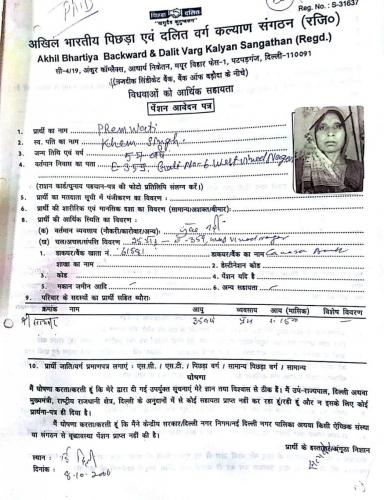 Reg. No.: S-31637
पिछड़ा दलित
अखिल भारतीय पिछड़ा एवं दलित वर्ग कल्याण संगठन (रजि०)
Akhil Bhartiya Backward & Dalit Varg Kalyan Sangathan (Regd.)
सी-4/19, अंकुर कॉम्प्लैक्स, आचार्य निकेतन, मयूर विहार फेस-1, पटपड़गंज, दिल्ली-110091
(नजदीक सिंडीकेट बैंक, बैंक ऑफ बड़ौदा के नीचे)
विधवाओं को आर्थिक सहायता
पेंशन आवेदन पत्र
1. प्रार्थी का नाम PRem Wati
2. स्व. पति का नाम Khem Singh
3. जन्म तिथि एवं वर्ष
4. वर्तमान निवास का पता E-355, Gali No-6 West Vinod Nagar
(राशन कार्ड/चुनाव पहचान-पत्र की फोटो प्रतिलिपि संलग्न करें।)
5. प्रार्थी का मतदाता सूची में पंजीकरण का विवरण :
6. प्रार्थी की शारीरिक एवं मानसिक दशा का विवरण (सामान्य/अशक्त/बीमार):
8. प्रार्थी की आर्थिक स्थिति का विवरण :
(क) वर्तमान व्यवसाय (नौकरी/कारोबार/अन्य):
(ख) चल/अचल/संपत्ति विवरण
1. डाकघर/बैंक खाता नं. 61581 डाकघर/बैंक का नाम Canara Bank
शाखा का नाम 2. डेस्टीनेशन कोड
3. कोड 4. पेंशन यदि है
5. मकान जमीन आदि 6. अन्य सहायता
9. परिवार के सदस्यों का प्रार्थी सहित ब्यौरा:
क्रमांक नाम आयु व्यवसाय आय (मासिक) विशेष विवरण
10. प्रार्थी जाति/वर्ग प्रमाणपत्र लगाएं : एस.सी. / एस.टी. / पिछड़ा वर्ग / सामान्य पिछड़ा वर्ग / सामान्य
घोषणा
मैं घोषणा करता/करती हूं कि मेरे द्वारा दी गई उपर्युक्त सूचनाएं मेरे ज्ञान तथा विश्वास से ठीक हैं। मैं उप-राज्यपाल, दिल्ली अथवा
मुख्यमंत्री, राष्ट्रीय राजधानी क्षेत्र, दिल्ली के अनुदानों में से कोई सहायता प्राप्त नहीं कर रहा हूं/रही हूं और न इसके लिए कोई
प्रार्थना-पत्र ही दिया है।
मैं घोषणा करता/करती हूं कि मैंने केन्द्रीय सरकार/दिल्ली नगर निगम/नई दिल्ली नगर पालिका अथवा किसी ऐच्छिक संस्था
या संगठन से वृद्धावस्था पेंशन प्राप्त नहीं की है।
प्रार्थी के हस्ताक्षर/अंगूठा निशान
स्थान : दिल्ली
दिनांक : 8-10-2000